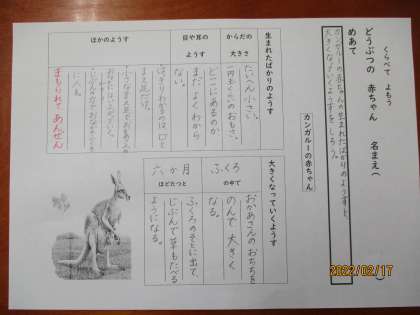 くらべて よもう
どうぶつの 赤ちゃん 名まえ(
めあて
カンガルーの赤ちゃんの生まれたばかりのようすと、
大きくなっていくようすをしろう。
カンガルーの赤ちゃん
生まれたばかりのようす
からだの
大きさ
たいへん小さい。
一円玉くらいのおもさ。
目や耳の
ようす
どこにあるのか
まだよくわから
ない。
ほかのようす
はっきりわかるのは口と
まえ足だけ。
まもられて あんぜん
大きくなっていくようす
ふくろ
の中で
おかあさんのおちちを
のんで大きく
なる。
六か月
ほどたつと
ふくろのそとに出て、
じぶんで草もたべる
ようになる。
2022/02/17